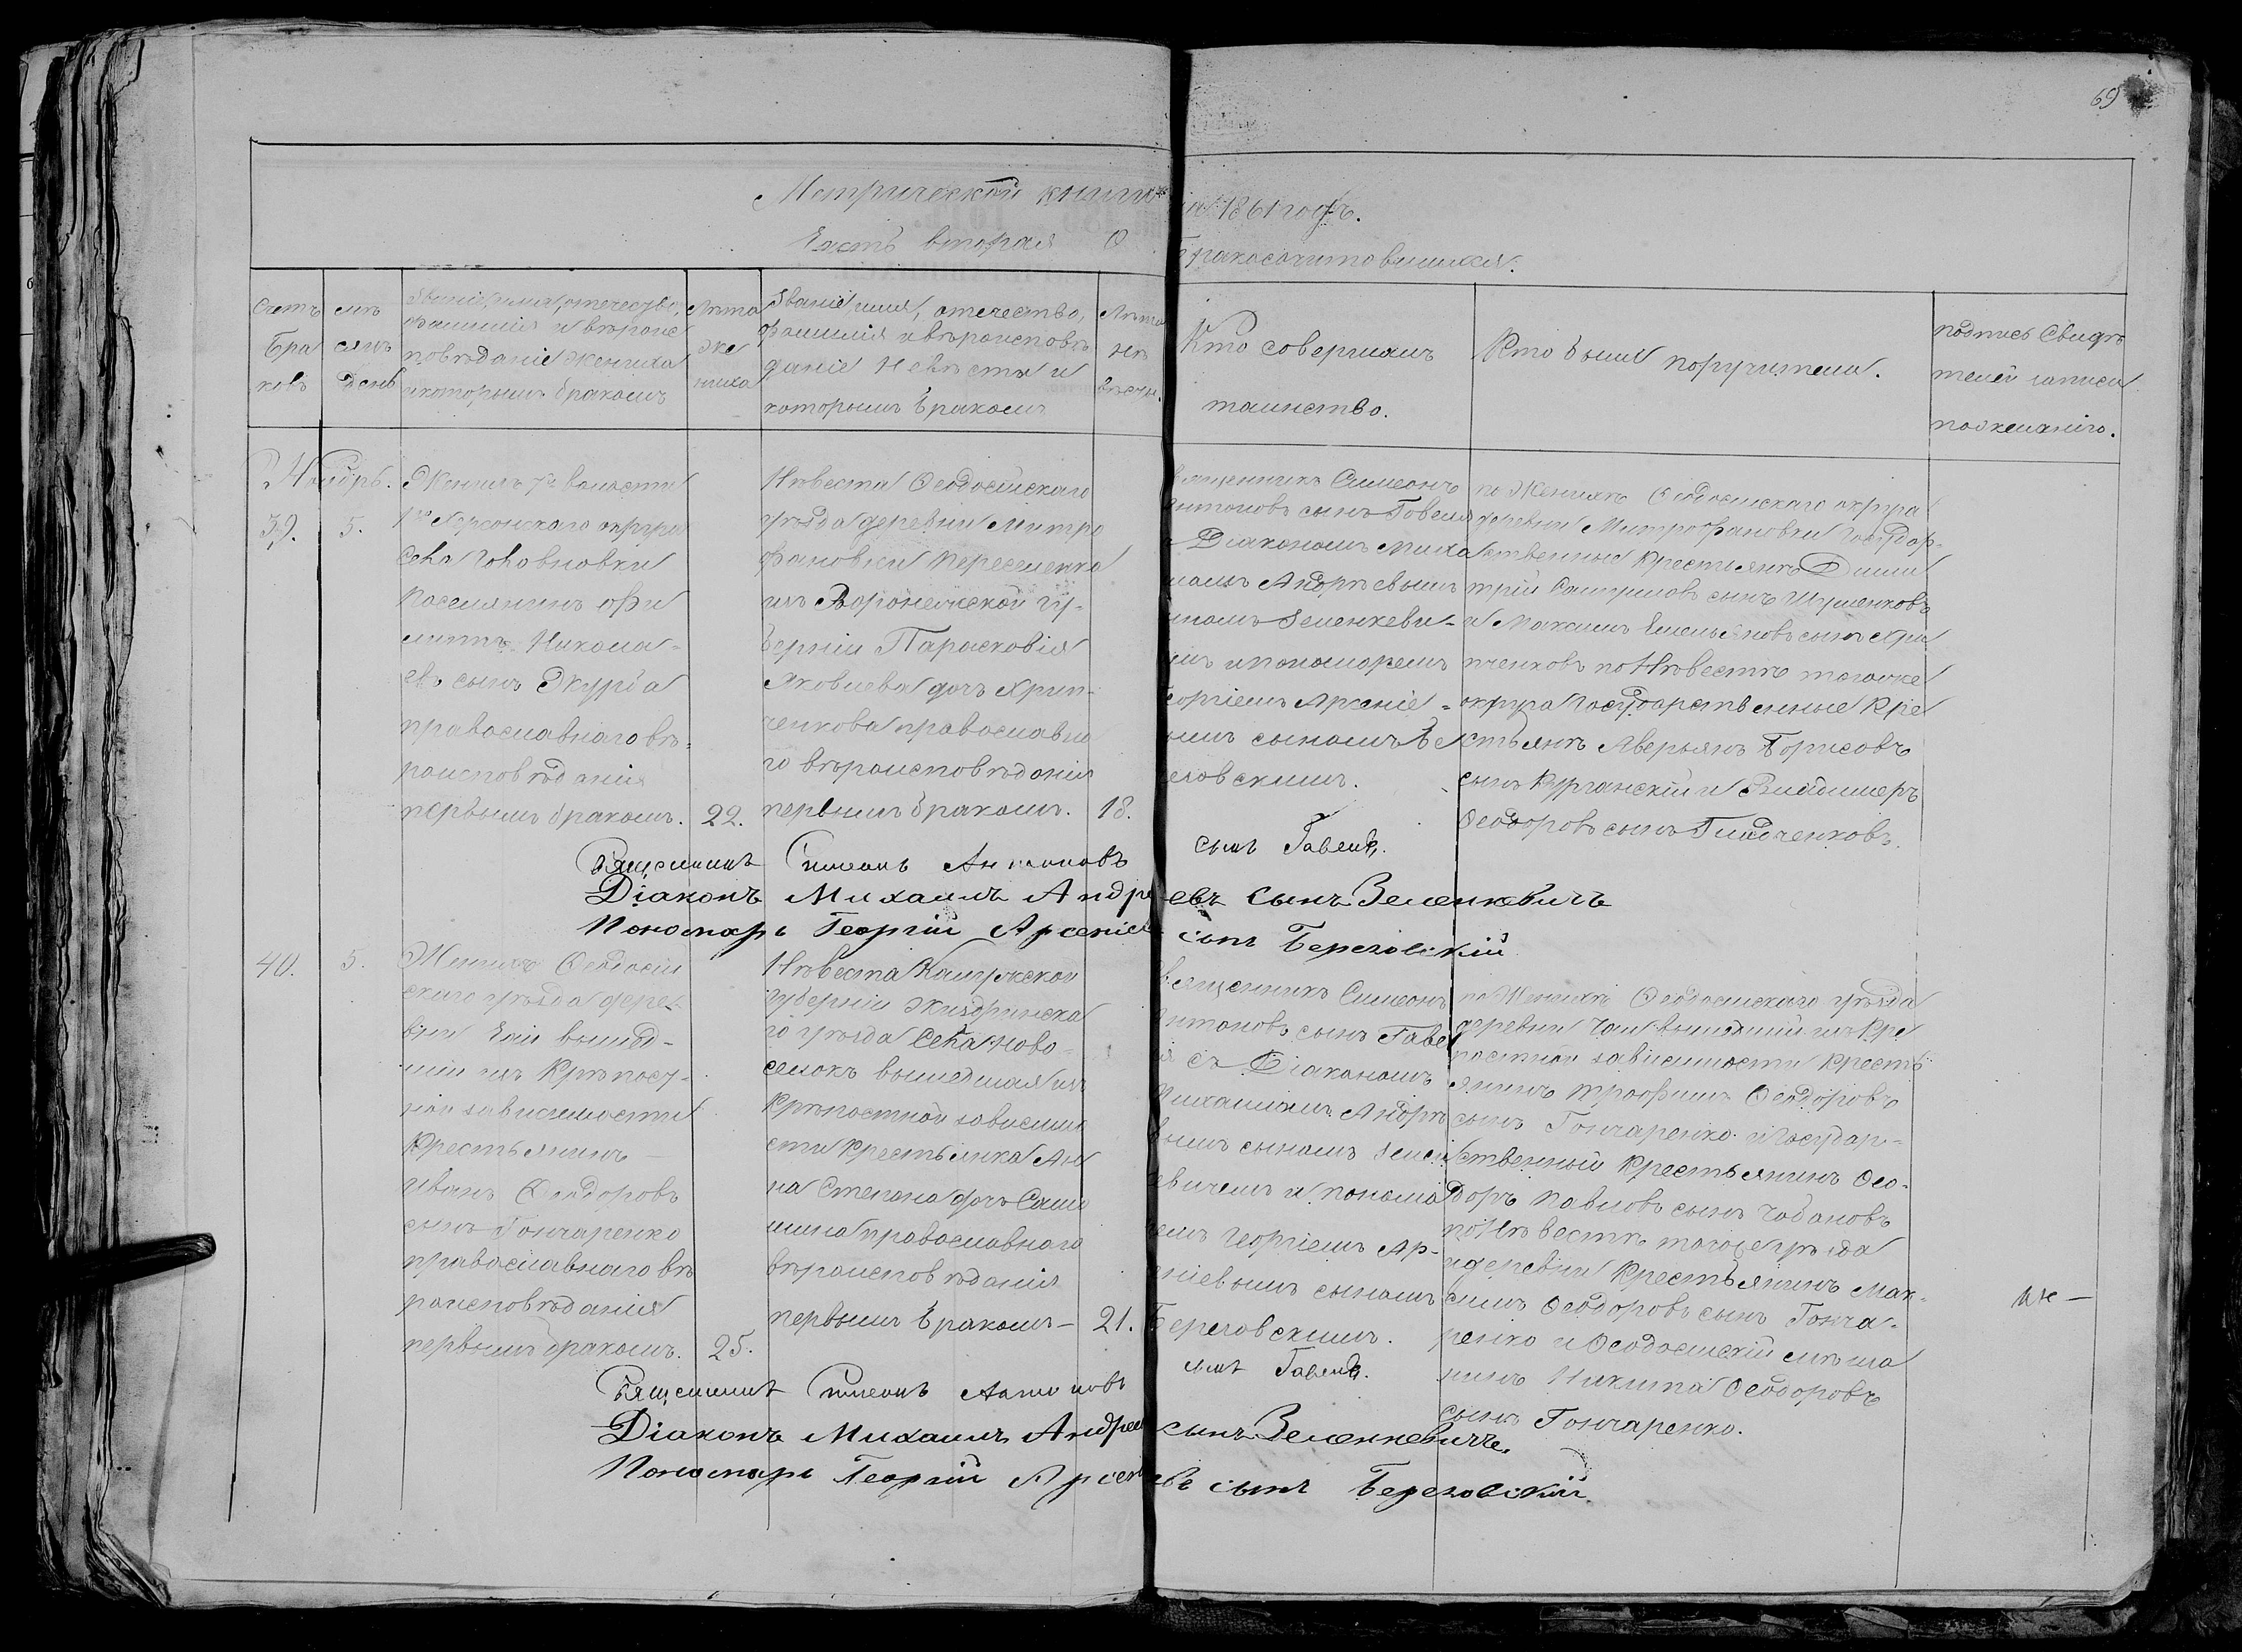 69
Метрической книги на 1861 годъ.
Часть вторая О бракосочитовшихся.
Счетъ браковъ
мѣсяцъ день
Званіе, имя, отечество,
фамилія и вѣроис
повѣданіе жениха
и которымъ бракомъ
Лѣта
же
ниха
Званіе, имя, отечество,
фамилія и вѣроисповѣ
даніе Невѣсты и
которымъ бракомъ
Лѣта
не
вѣсты.
Кто совершилъ
таинство.
Кто были поручители.
подпись Свидѣ
телей записи
по желанію.
Ноябрь.
39.
5.
Женихъ 7й волости
1го Херсонскаго округа
Села
Поселянинъ Фи
липпъ Никола-
евъ сынъ Журба
православнаго вѣ-
роисповѣданія
первымъ бракомъ.
22.
Невѣста Ѳеодосійскаго
уѣзда деревни Митро
фановки переселенка
изъ Воронежской гу-
берніи Парасковія
Яковлева дочь Хрип-
ченкова православна
го вѣроисповѣданія
первымъ бракомъ.
18.
Священникъ Симеонъ
Антоновъ сынъ Говеля
Діакономъ Миха
иломъ Андреевымъ
сыномъ Зеленкеви-
чемъ и пономоремъ
Георгіемъ Арсеніе-
вымъ сыномъ Бе
реговскимъ.
по Женихѣ Ѳеодосійскаго округа
деревни Митрофановки Государ-
ственные крестьянѣ Дими
трій сынъ Шуменковъ
и Максимъ Емельяновъ сынъ Хри
пченковъ по Невестѣ тогоже
округа Государственные Кре
стьянѣ Аверьянъ Борисовъ
сынъ Курганскій и Владимеръ
Ѳеодоровъ сынъ
Священникъ Симеонъ Антоновъ сынъ Гавеля.
Діаконъ Михаилъ Андреевъ сынъ Зеленкевичъ
Пономарь Георгій Арсеніевъ сынъ Береговскій
40.
5.
Женихъ Ѳеодосій
скаго уѣзда дере-
вни вышед-
шій изъ Крѣпост-
ной зависимости
Крестьянинъ —
Иванъ Ѳеодоровъ
сынъ Гончаренко
православнаго вѣ
роисповѣданія
первымъ бракомъ.
25.
Невѣста Калужской
губерніи Жиздринска
го уѣзда Села Ново-
селокъ вышедшая изъ
Крѣпостной зависимо
сти крестьянка Ан
на Степана дочь
православнаго
вѣроисповѣданія
первымъ бракомъ —
21.
Священникъ Симеонъ
Антоновъ сынъ Гаве
ля съ Діакономъ
Михаиломъ Андрѣе
вымъ сыномъ Зелен
кевичемъ и понома
ремъ Георгіемъ Ар-
сеніевымъ сыномъ
Береговскимъ.
по Женихѣ Ѳеодосійскаго уѣзда
деревни вышедшій изъ Крѣ
постной зависимости Кресть
янинъ Трофимъ Ѳеодоровъ
сынъ Гончаренко и Государ-
ственный Крестьянинъ Ѳео-
доръ Павловъ сынъ Чобановъ
по Невестѣ тогоже уѣзда
и деревни Крестьянинъ Мак-
симъ Ѳеодоровъ сынъ Гонча-
ренко и Ѳеодосійскій мѣща
нинъ Никита Ѳеодоровъ
сынъ Гончаренко.
Священникъ Симеонъ Антоновъ сынъ Гавеля.
Діаконъ Михаилъ Андреевъ сынъ Зеленкевичъ.
Пономарь Георгій Арсеніевъ сынъ Береговскій.